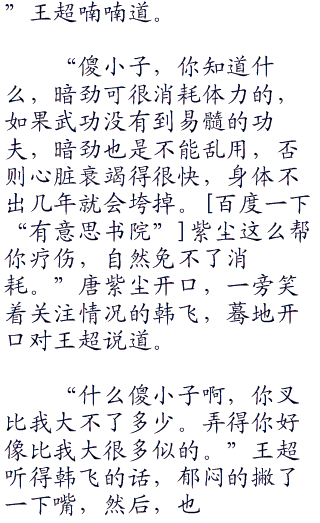 ”王超喃喃道。
“傻小子，你知道什
么，暗劲可很消耗体力的，
如果武功没有到易髓的功
夫，暗劲也是不能乱用，否
则心脏衰竭得很快，身体不
出几年就会垮掉。[百度一下
“有意思书院”]紫尘这么帮
你疗伤，自然免不了消
耗。”唐紫尘开口，一旁笑
着关注情况的韩飞，蓦地开
口对王超说道。
“什么傻小子啊，你又
比我大不了多少。弄得你好
像比我大很多似的。”王超
听得韩飞的话，郁闷的撇了
一下嘴，然后，也